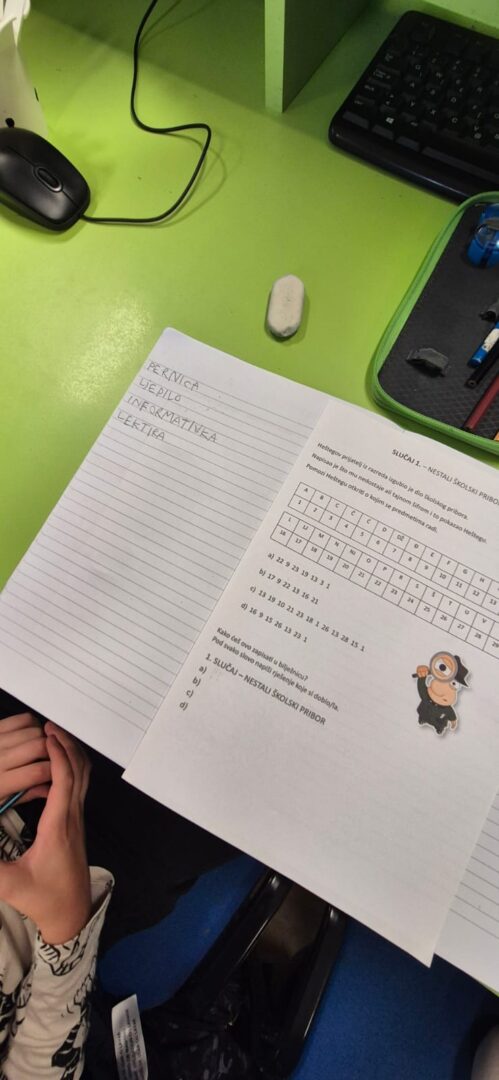 PERNICA
LJEPILO
INFORMATIVKA
LEKTIRA
SLUČAJ 1. – NESTALI ŠKOLSKI PRIBOR
Heštegov prijatelj iz razreda izgubio je dio školskog pribora.
Napisao je što mu nedostaje ali tajnom šifrom i to pokazao Heštegu.
Pomozi Heštegu otkriti o kojim se predmetima radi.
A B C Č Ć D DŽ Đ E F G H
1 2 3 4 5 6 7 8 9 10 11 12 13
L LJ M N NJ O P R S Š T U V
16 17 18 19 20 21 22 23 24 25 26 27 28 29
a) 22 9 23 19 13 3 1
b) 17 9 22 13 16 21
c) 13 19 10 21 23 18 1 26 13 28 15 1
d) 16 9 15 26 13 23 1
Kako ćeš ovo zapisati u bilježnicu?
Pod svako slovo napiši rješenje koje si dobio/la.
1. SLUČAJ – NESTALI ŠKOLSKI PRIBOR
a)
b)
c)
d)